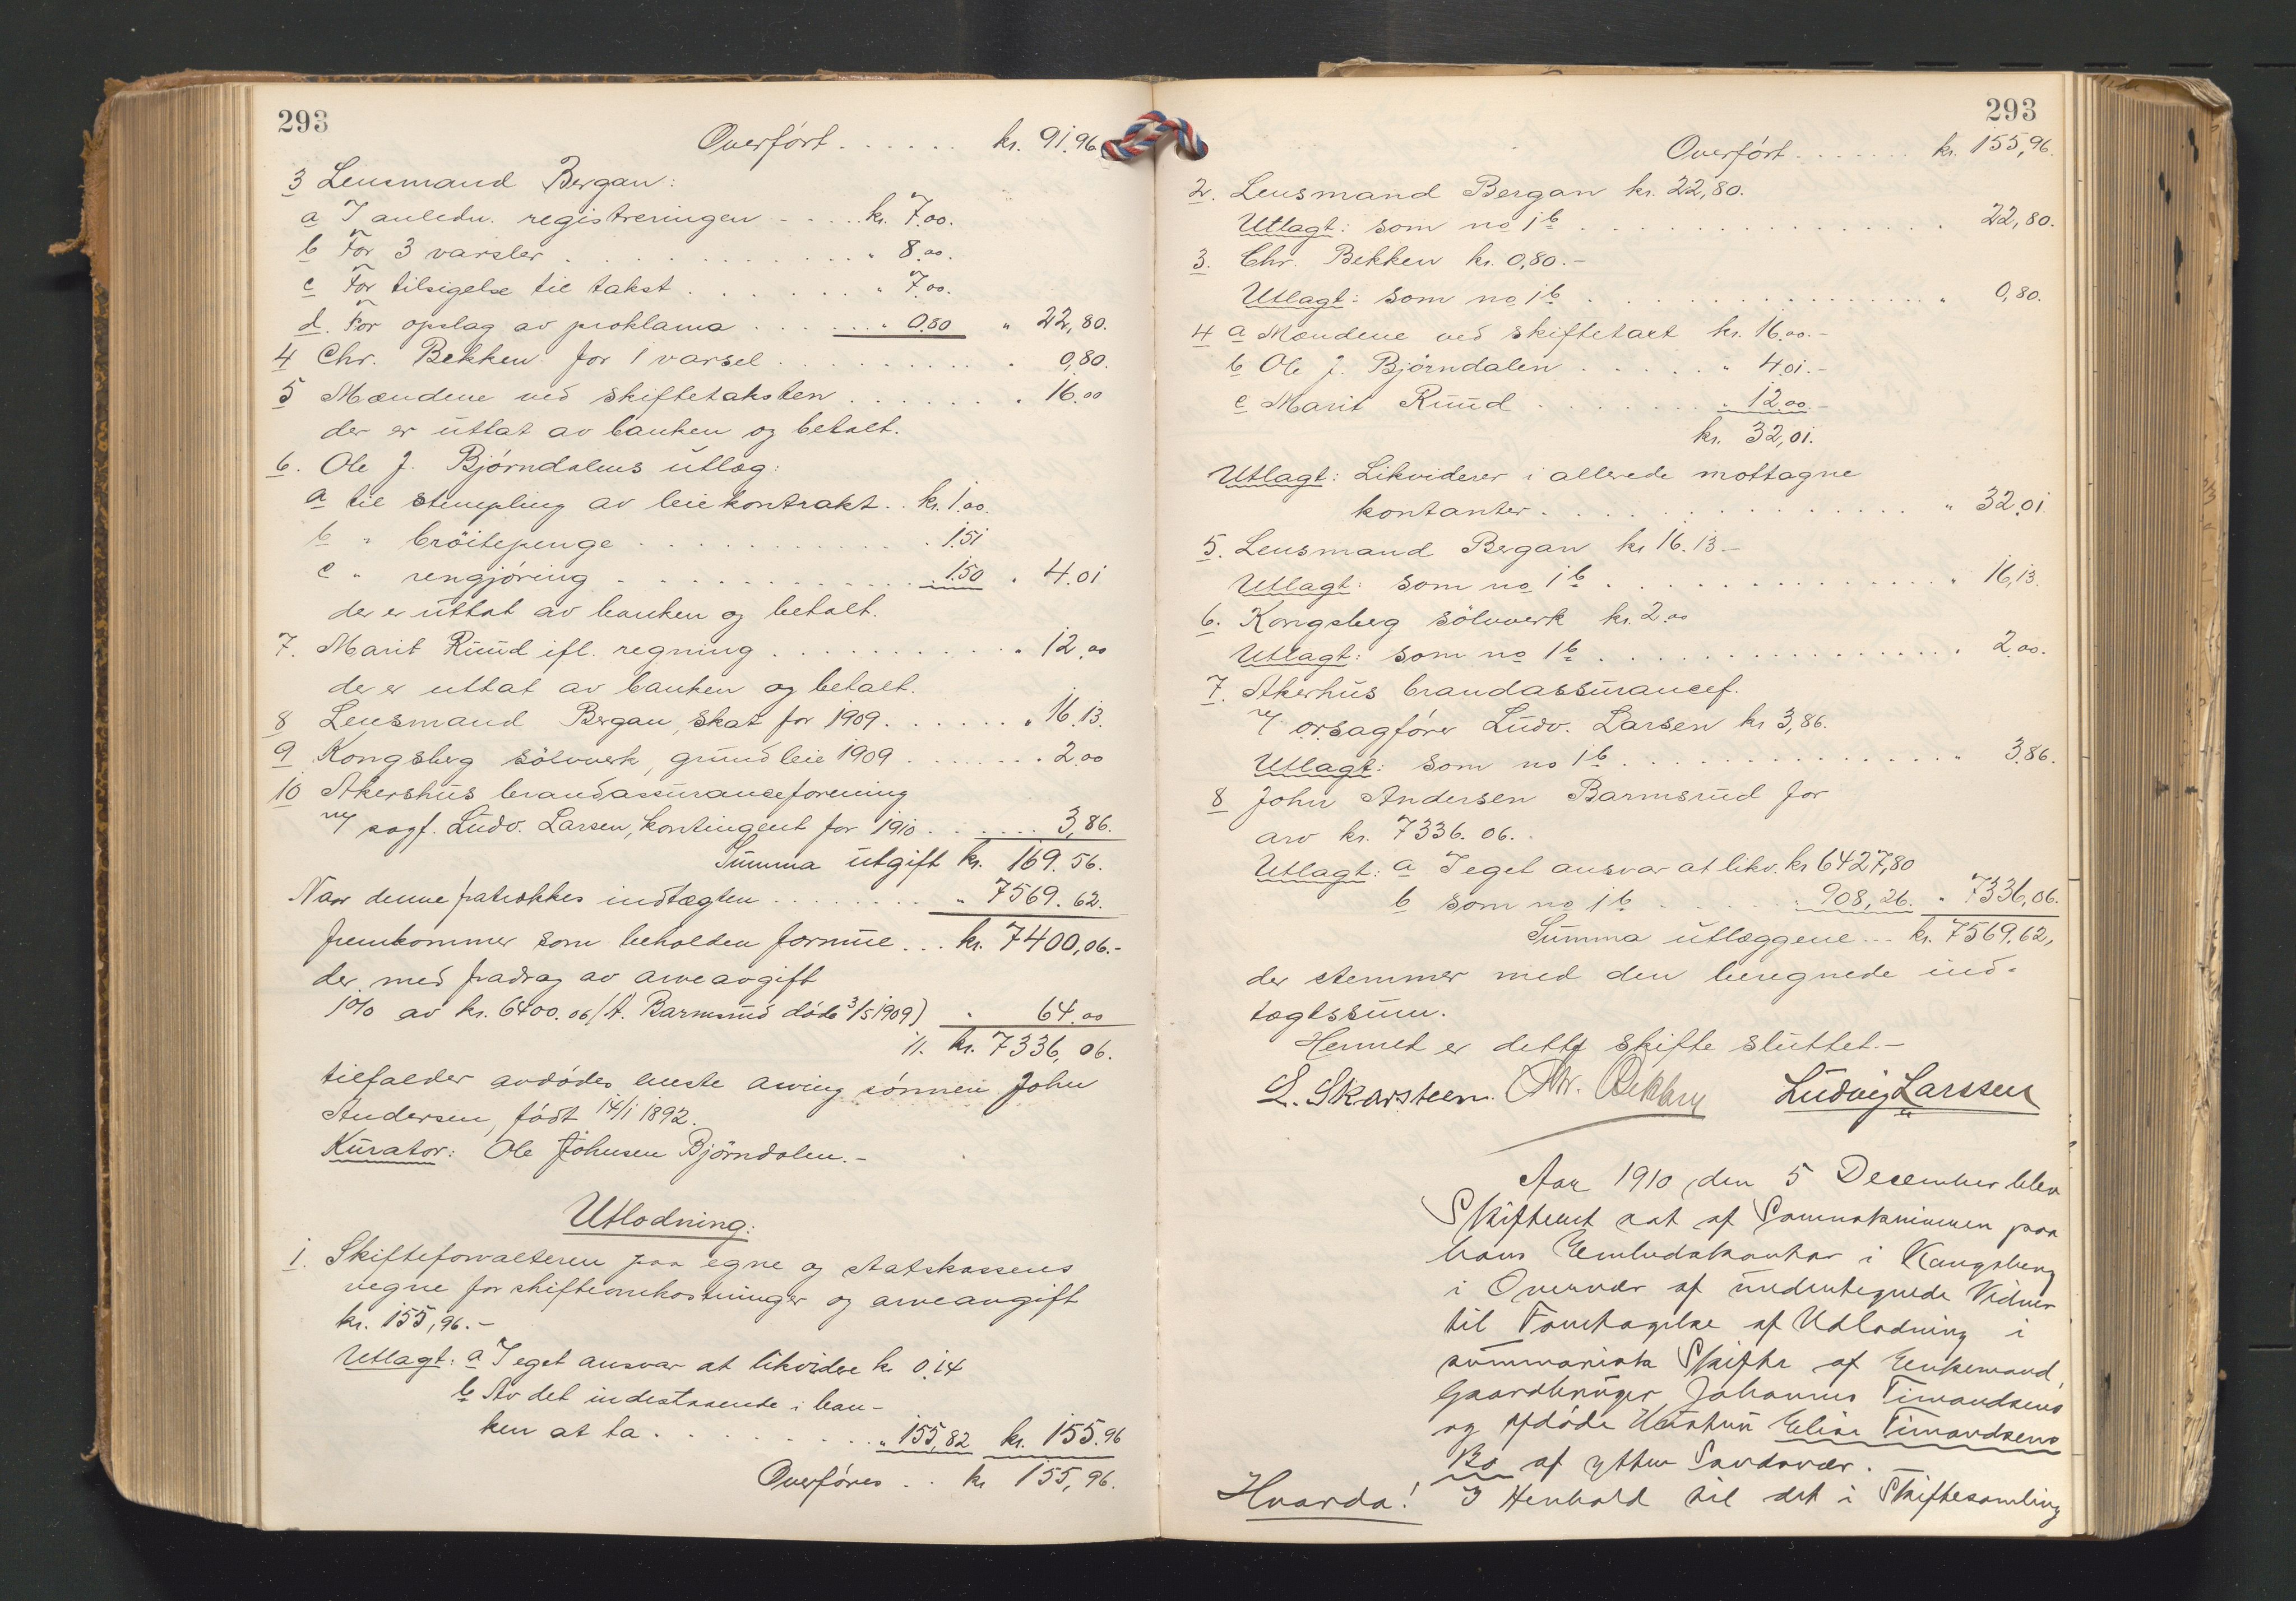 293
Overført . . . . . . kr. 91.96
3 Lensmand Bergan:
a I anledn. registreringen - . . . kr. 7.00.
b For 3 varsler . . . . . . . . . . . . " 8.00.
c For tilsigelse til takst . . . . . . . " 7.00.
d. For opslag av proklama . . . . . . " 0.80 " 22,80.
4 Chr. Bekken for 1 varsel . . . . . . . . . . " 0,80.
5 Mændene ved skiftetaksten . . . . . . . " 16.00
der er uttat av banken og betalt.
6. Ole J. Bjørndalens utlæg:
a til stempling av leiekontrakt . . kr. 1.00.
b " brøitepenge . . . . . . . . . . . " 1.51
c " rengjøring . . . . . . . . . . . . " 1.50 " 4.01
der er uttat av banken og betalt.
7. Marit Ruud ifl. regning . . . . . . . . . . . " 12.00
der er uttat av banken og betalt.
8 Lensmand Bergan, skat for 1909 . . . . . . . " 16.13.
9 Kongsberg sölvverk, grundleie 1909 . . . . . . . 2.00
10 Akershus brandassuranceforening
v/ sagf. Ludv. Larsen, kontingent for 1910 . . . . . . . 3,86.
Summa utgift kr. 169.56.
Naar denne fratrækkes indtægten . . . . . . . . " 7569.62.
fremkommer som beholden formue . . . kr. 7400,06.-
der med fradrag av arveavgift
1% av kr. 6400.06 (A. Barmsrud døde 3/5 1909) " 64.00
kr. 7336,06.
tilfalder avdødes eneste arving sønnen John
Andersen, født 14/1 1892.
Kurator: Ole Johnsen Bjørndalen.-
Utlodning:
1. Skifteforvalteren paa egne og statskassens
vegne for skifteomkostninger og arveavgift
kr. 155,96.-
Utlagt: a I eget ansvar at likvidere kr 0.14
b Av det indestaaende i ban-
ken at ta . . . . . . . . . . " 155,82 kr. 155.96
Overføres . . kr 155,96.
293
Overført . . . . . . . kr. 155,96.
2. Lensmand Bergan kr. 22,80.
Utlagt: som no 1b . . . . . . . . . . . . . . . . 22,80.
3. Chr. Bekken kr. 0,80.-
Utlagt: som no 1b . . . . . . . . . . . . . . . . " 0,80.
4 a Mændene ved skiftetaxt kr. 16.00.-
b Ole J. Bjørndalen . . . . . . " 4.01.-
c Marit Ruud . . . . . . . " 12.00.-
kr. 32,01.
Utlagt: Likviderer i allerede mottagne
kontanter . . . . . . . . . . . . . . . . " 32.01.
5. Lensmand Bergan kr 16.13-
Utlagt: som no 1b . . . . . . . . . . . . . . . " 16,13.
6. Kongsberg sölvverk kr. 2.00
Utlagt: som no 1b . . . . . . . . . . . . . . . . 2.00.
7. Akerhus brandassurancef.
v/ orsagfører Ludv. Larsen kr 3,86.
Utlagt: som no 1b . . . . . . . . . . . . . . . " 3.86.
8 John Andersen Barmsrud for
arv kr. 7336.06.
Utlagt: a I eget ansvar at likv. kr 6427,80
b som no 1b . . . . . . " 908,26. " 7336,06.
Summa utlæggene . . . kr. 7569.62,
der stemmer med den beregnede ind-
tægtssum.
Hermed er dette skifte sluttet.-
L. Skarsteen. Chr. Bekken Ludvig Larssen
Aar 1910 den 5 December blev
Skifteret sat af Sorenskriveren paa
hans Embedskontor i Kongsberg
i Overvær af undertegnede Vidner
til Foretagelse af Udlodning i
summarisk Skifte af Enkemand,
Gaardbruger Johannes Timandsens
og afdøde Hustru Elise Timandsens
Bo af ytter Sandsvær.
Hvorda! I Henhold til det i Skiftesamling